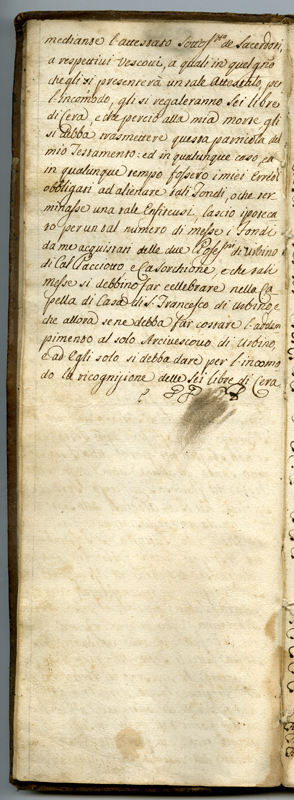 mediante l'attestato Sottos.tto de Sacerdoti,
a respettivi Vescovi, a quali in quel giño
che gli si presenterà un tale Attestato, per
l'incomodo, gli si regaleranno Sei libre
di Cera, e che perciò alla mia morte gli
si debba trasmettere questa particola del
mio Testamento: ed in qualunque caso, ed
in qualunque tempo fossero i miei Eredi
obbligati ad alienare i dti Fondi, o che ter
minasse una tale Enfiteusi, lascio ipoteca
to per un tal numero di messe i Fondi
da me acquistati delle due Possess.ni di Urbino
di Cal Pacciotto, e Ca Sorchione, e che tale
messe si debbino far cellebrare nella Ca
pella di Casa di S. Francesco di Urbino, e
che allora se ne debba far costare l'adem
pimento al solo Arcivescovo di Urbino,
ed ad Egli solo si debba dare per l'incomo
do la ricognizione delle Sei libre di Cera